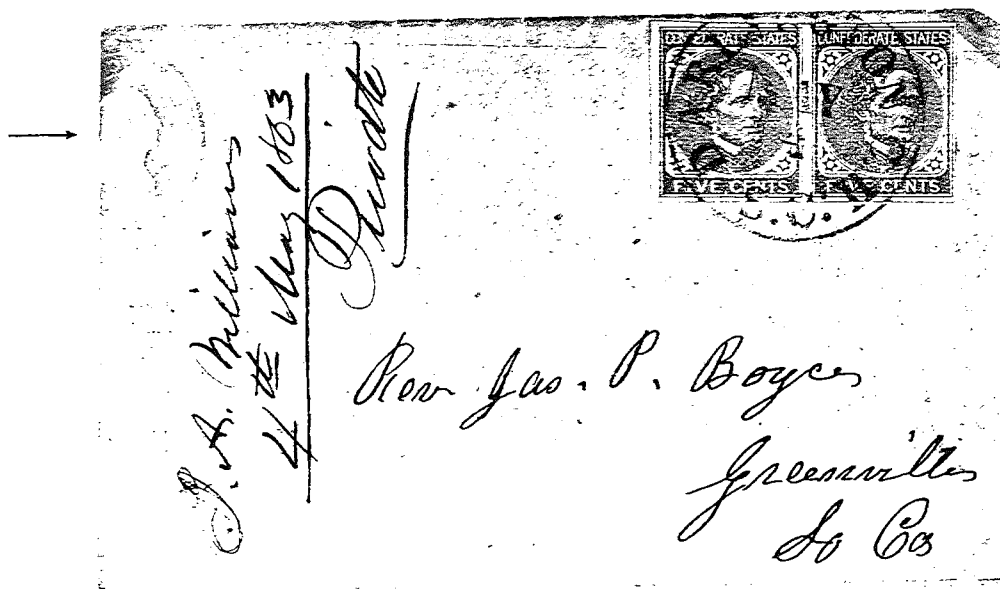 CONFEDERATE STATES
CONFEDERATE STATES
FIVE CENTS
FIVE CENTS
J. A. Williams
4th May 1863
Private
Rev Jas. P. Boyce
Greenville
So Ca